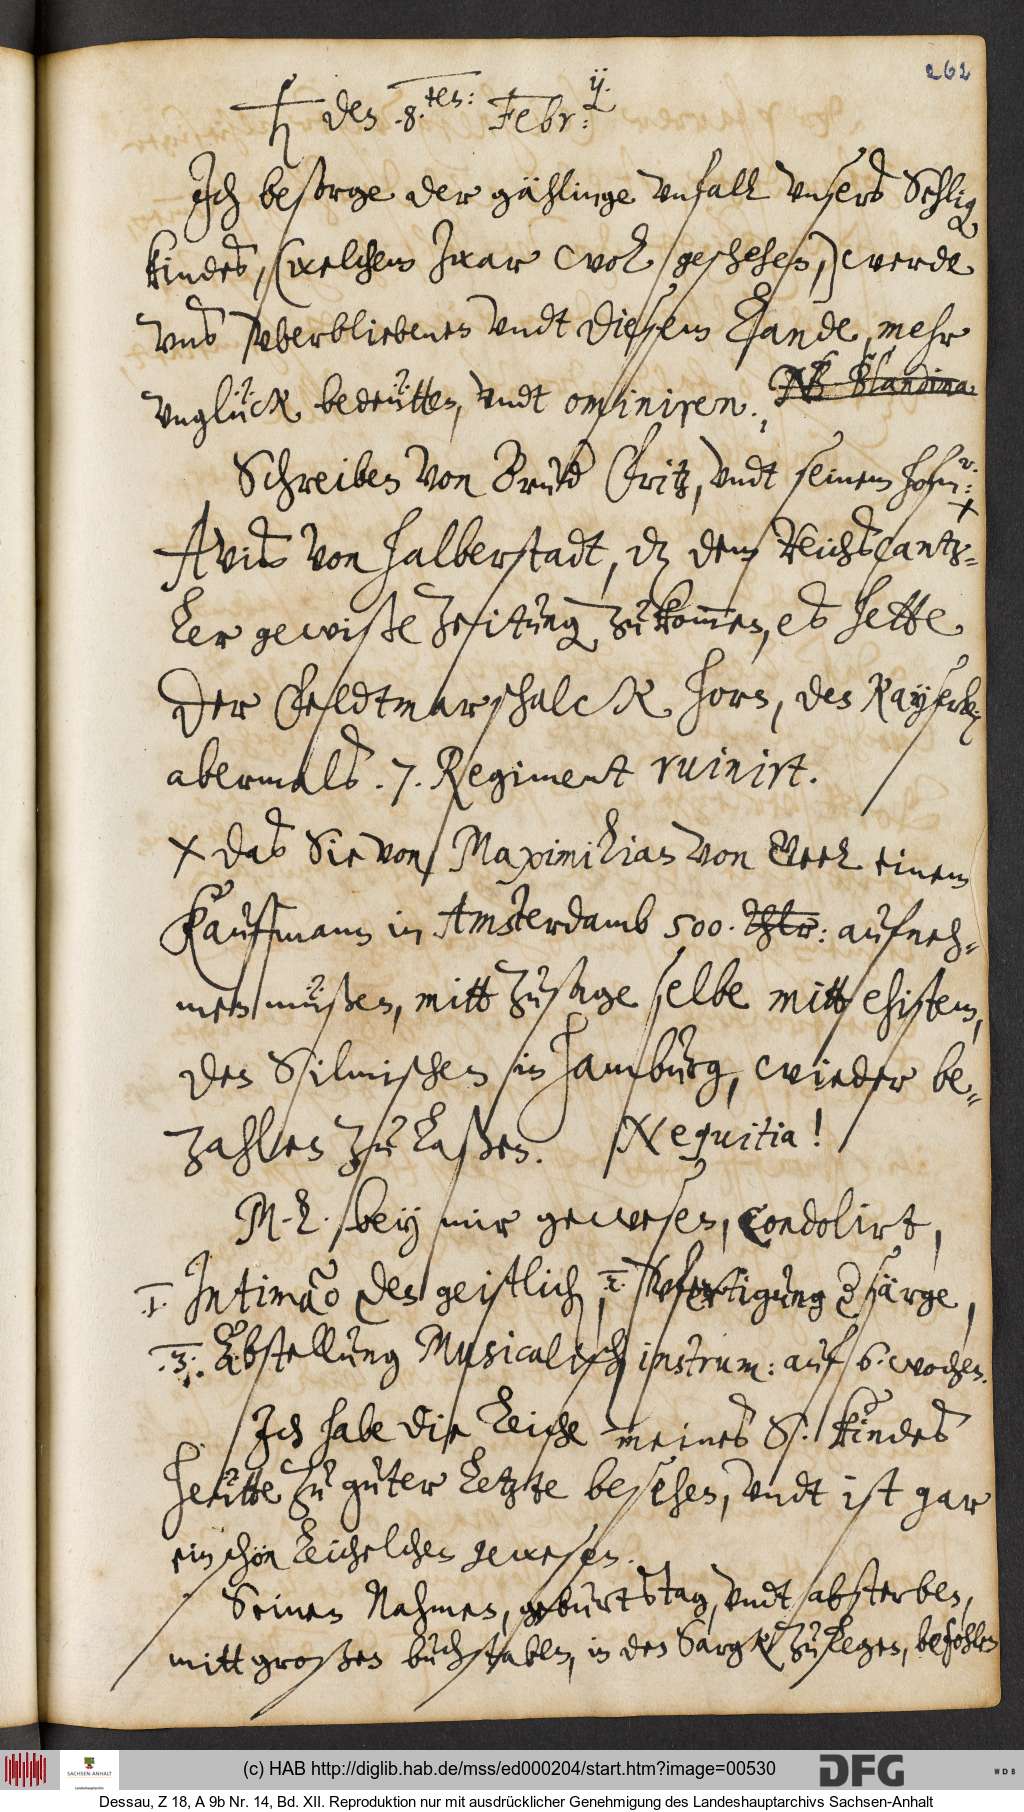 262
♄ den .8.ten: Febr: ÿ.
Ich besorge der gählinge vnfall vnsers Sehlig
kindes, (welchem zwar wol geschehen,) werde
vns vberbliebenen vndt diesem Lande, mehr
vnglück bedeütten, vndt ominiren., NB Blandina.
Schreiben von Brud Fritz, vndt seinem hofm: r. +
Avis von Halberstadt, dz dem Reichscantz-
ler gewiße zeitung zukommen, es hette
der Feldtmarschalck Horn, des Kayserß
abermals .7. Regiment ruinirt.
+ das Sie von Maximilian von Eeck einem
Kauffmann in Amsterdamb 500. Thlr: aufneh-
men müßen, mitt zusage selbe mitt ehistem,
den Silmischen in Hamburg, wieder be-
zahlen zu laßen. Nequitia!
M-L. bey mir gewesen, Condolirt,
.1. Intimão des geistlich, .2. Verfertigung d särge,
.3. Abstellung Musicalisch instrum: auf 6. wochen.
Ich habe die Leiche meines S: kindes
heütte zu guter letzte besehen, vndt ist gar
ein schön Leichelchen gewesen.
Seinen Nahmen, geburtstag, vndt absterben,
mitt großen buchstaben, in den Sargk zu legen, befohlen
(c) HAB http://diglib.hab.de/mss/ed000204/start.htm?image=00530
SACHSEN-ANHALT
Landeshauptarchiv
DFG
WDB
Dessau, Z 18, A 9b Nr. 14, Bd. XII. Reproduktion nur mit ausdrücklicher Genehmigung des Landeshauptarchivs Sachsen-Anhalt